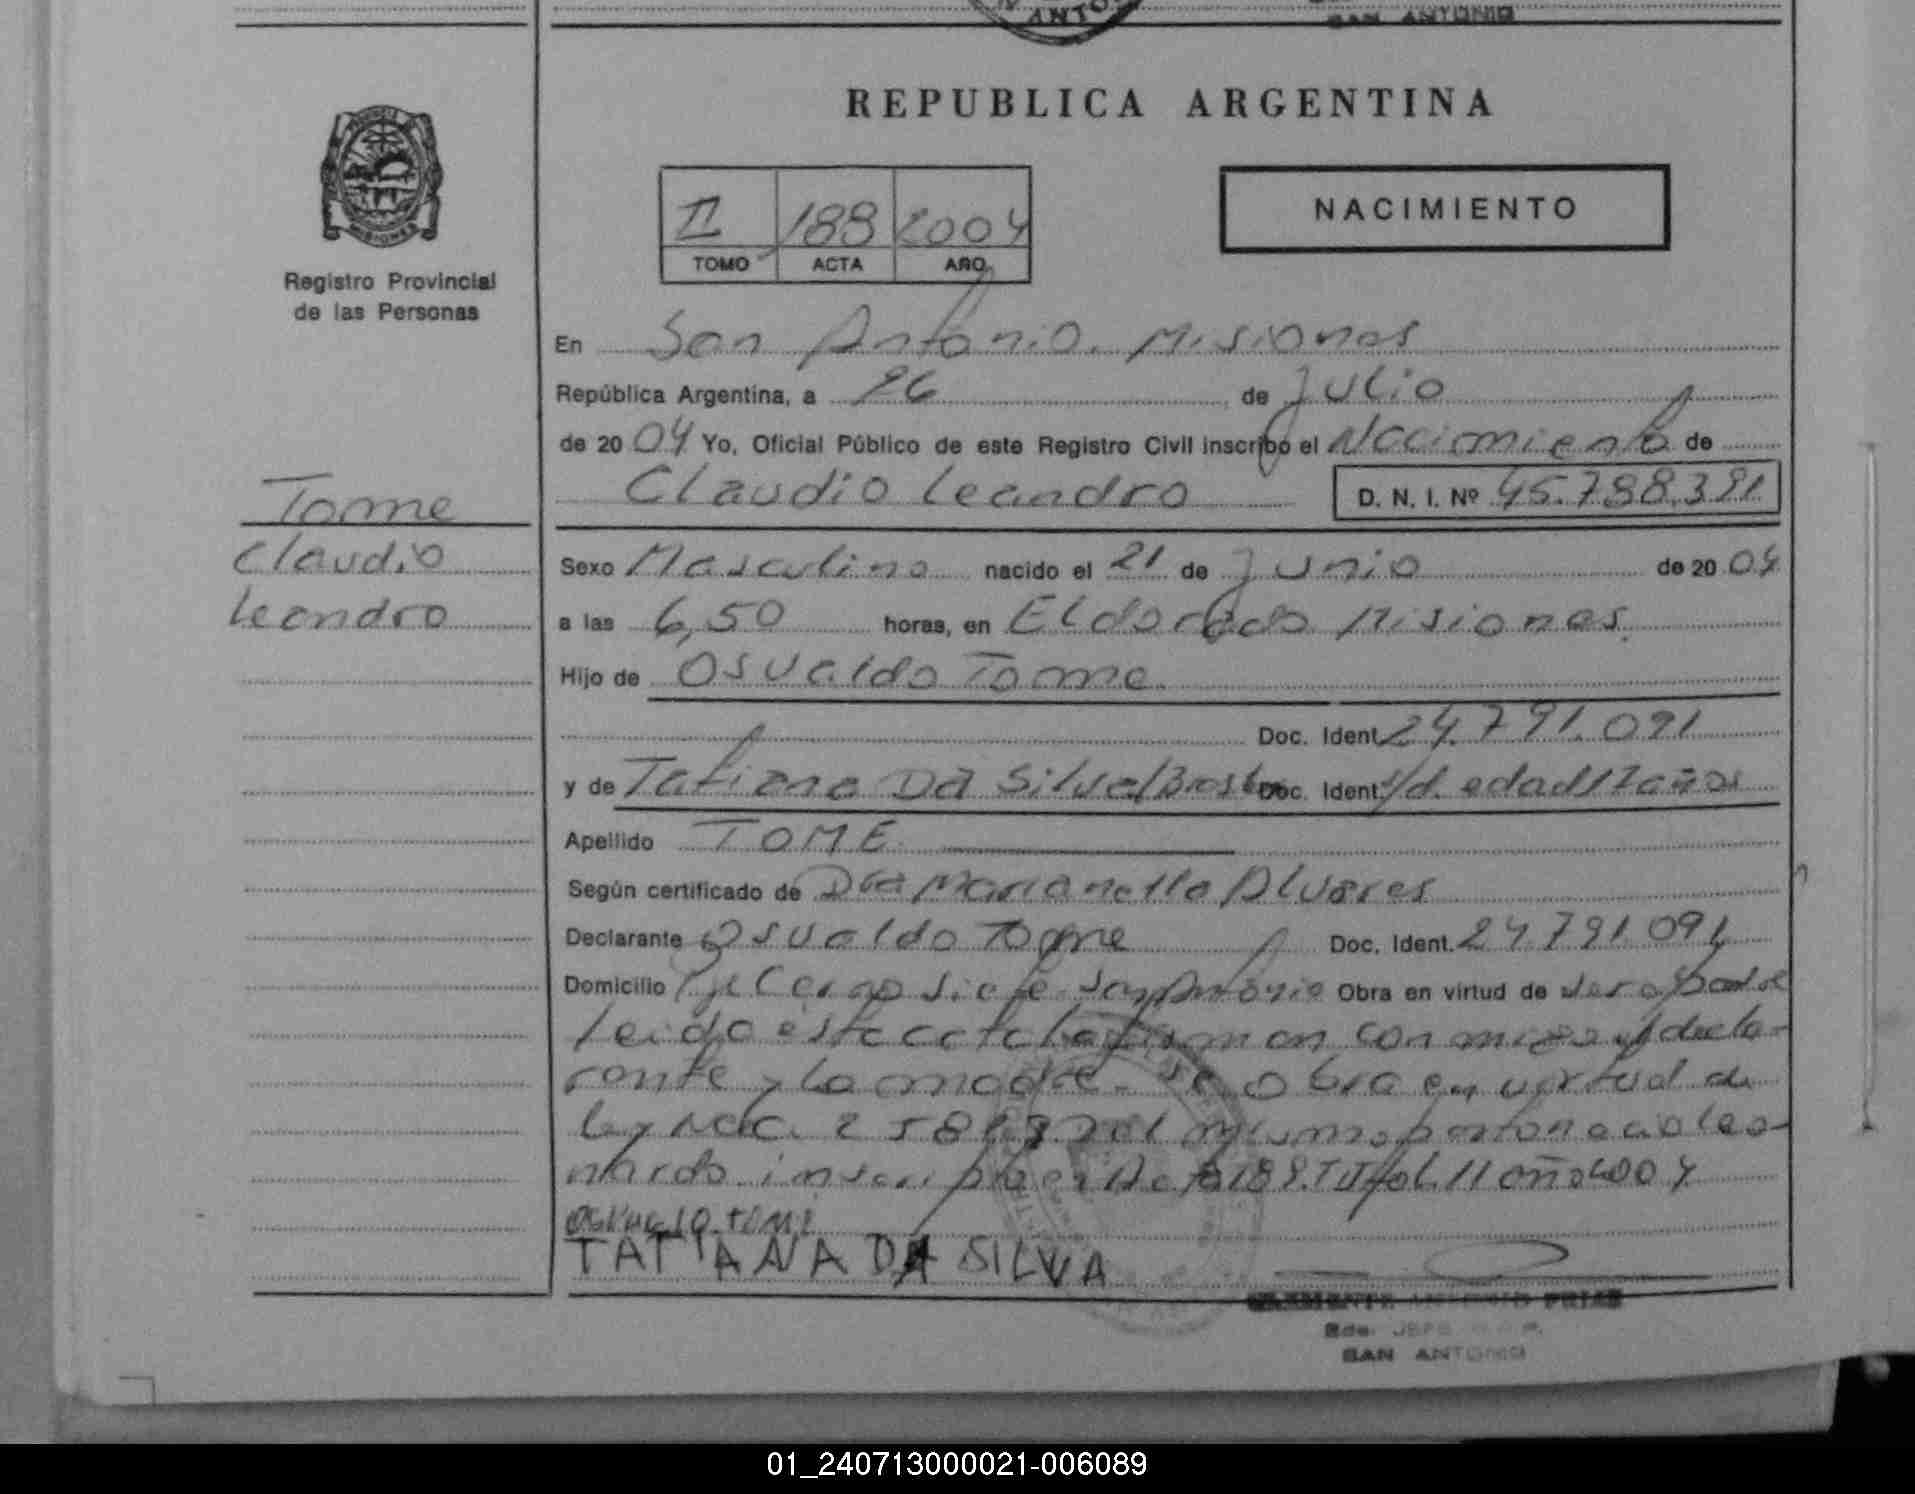 ANTO
SAN ANTONIO
REPUBLICA ARGENTINA
MISIONES
Registro Provincial
de las Personas
II 188 2004
TOMO ACTA AÑO
NACIMIENTO
En San Antonio. Misiones
República Argentina, a 26 de Julio
de 2004 Yo, Oficial Público de este Registro Civil inscribo el Nacimiento de
Claudio Leandro D. N. I. Nº 45.788.391
Tome
Claudio
Leandro
Sexo Masculino nacido el 21 de Junio de 2004
a las 6,50 horas, en Eldorado Misiones.
Hijo de Osvaldo Tome.
Doc. Ident. 24.791.091
y de Tatiana Da Silva Doc. Ident. s/d. edad 17 años
Apellido TOME
Según certificado de Dra Marianella Alvares
Declarante Osvaldo Tome Doc. Ident. 24791091
Domicilio Pje Cerro Siete San Antonio Obra en virtud de ser el padre
leido esta acta la firman con migo el decla-
rante y la madre. Se obra en virtud de
Ley Nac. el mismo
nardo inscripto en Acta 189. T II fol. 11 año 2004
OSVALDO TOME
TATIANA DA SILVA
CLEMENTE ANTONIO FRIAS
SAN ANTONIO
01_240713000021-006089